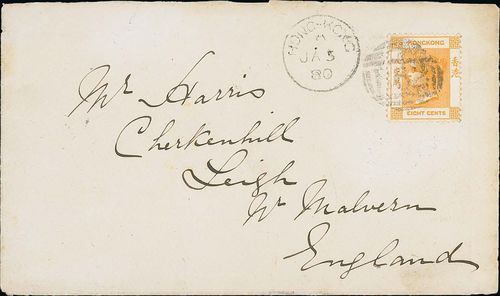 HONG-KONG
A
JA 5
80
HONGKONG
香港
EIGHT CENTS
Mr Harris
Cherkenhill
Leigh
Nr Malvern
England